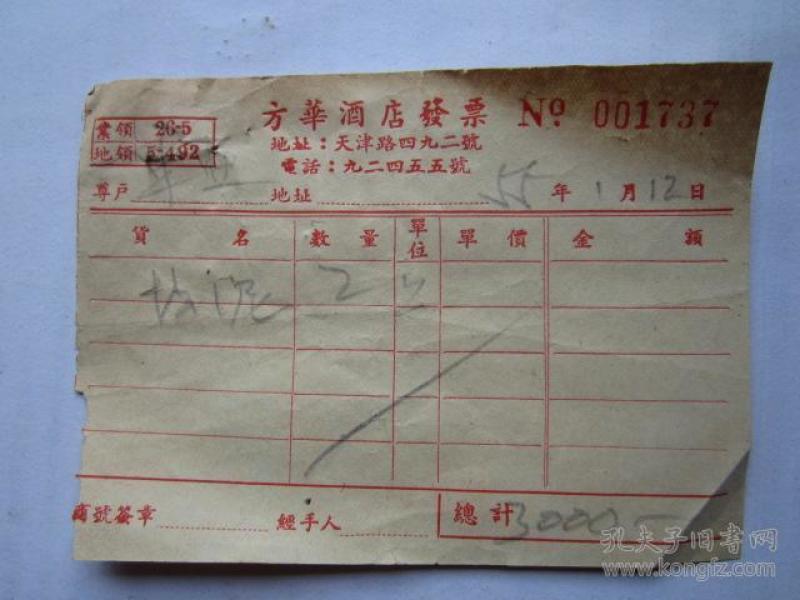 方華酒店發票 Nº 001737
業領 26-5
地領 5-492
地址：天津路四九二號
電話：九二四五五號
尊戶 地址 55年1月12日
貨名 數量 單位 單價 金額
2
商號簽章 經手人 總計 3000—
孔夫子旧书网
www.kongfz.com